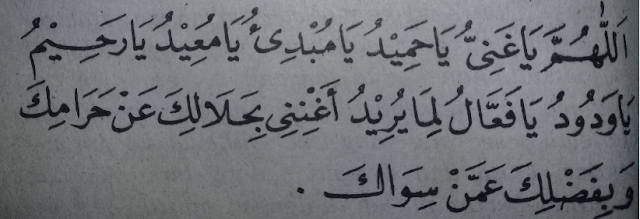 اَللّٰهُمَّ يَاغَنِىُّ يَاحَمِيْدُ يَامُبْدِئُ يَامُعِيْدُ يَارَحِيْمُ
يَاوَدُوْدُ يَافَعَّالُ لِمَايُرِيْدُ أَغْنِنِى بِحَلَالِكَ عَنْ حَرَامِكَ
وَبِفَضْلِكَ عَمَّنْ سِوَاكَ .